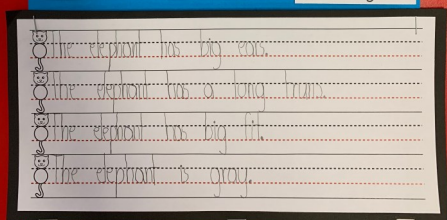 The elephant has big ears.
The elephant has a long trunk.
The elephant has big fit.
The elephant is gray.